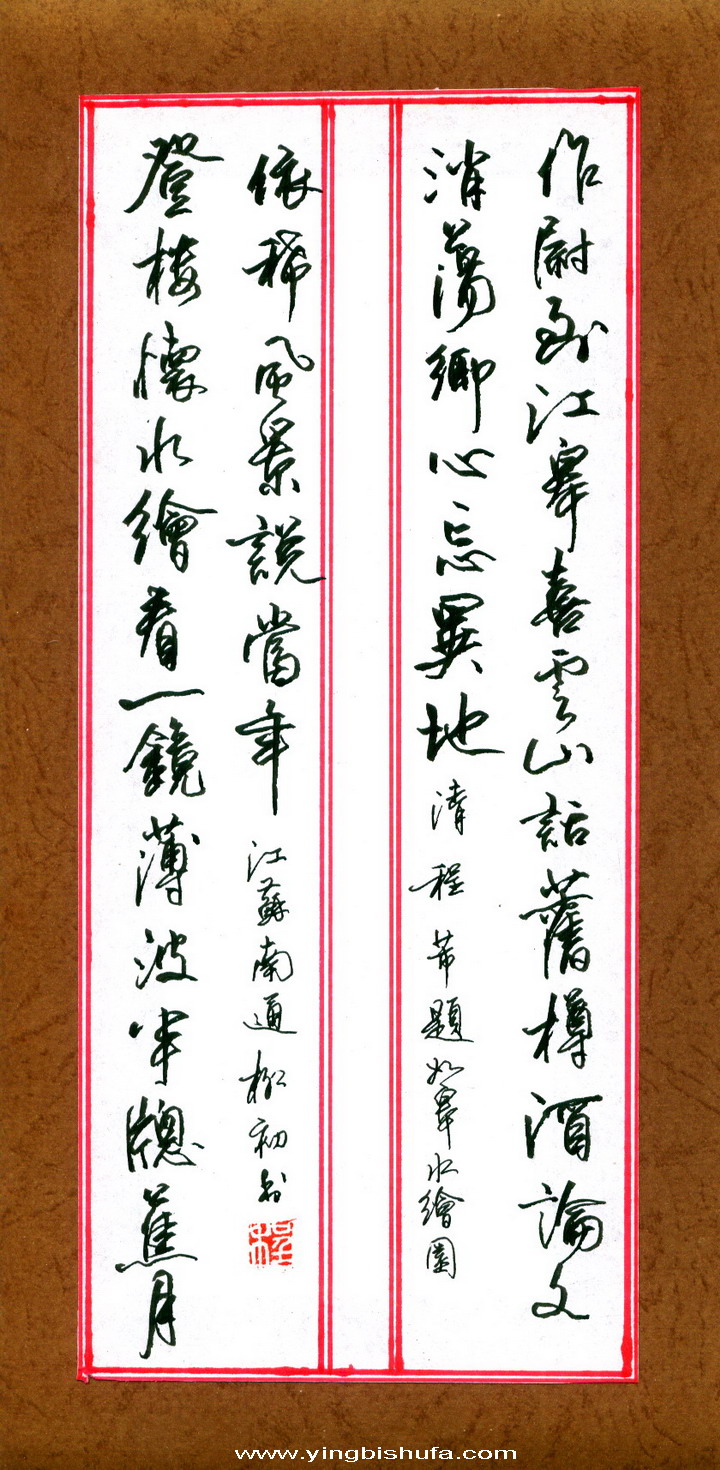 作尉到江皋喜雲山話舊樽酒論文
消蕩鄉心忘異地 清程芾題如皋水繪園
登樓懷水繪看一鏡薄波半牕蕉月
依稀風景說當年 江蘇南通初書
程
www.yingbishufa.com